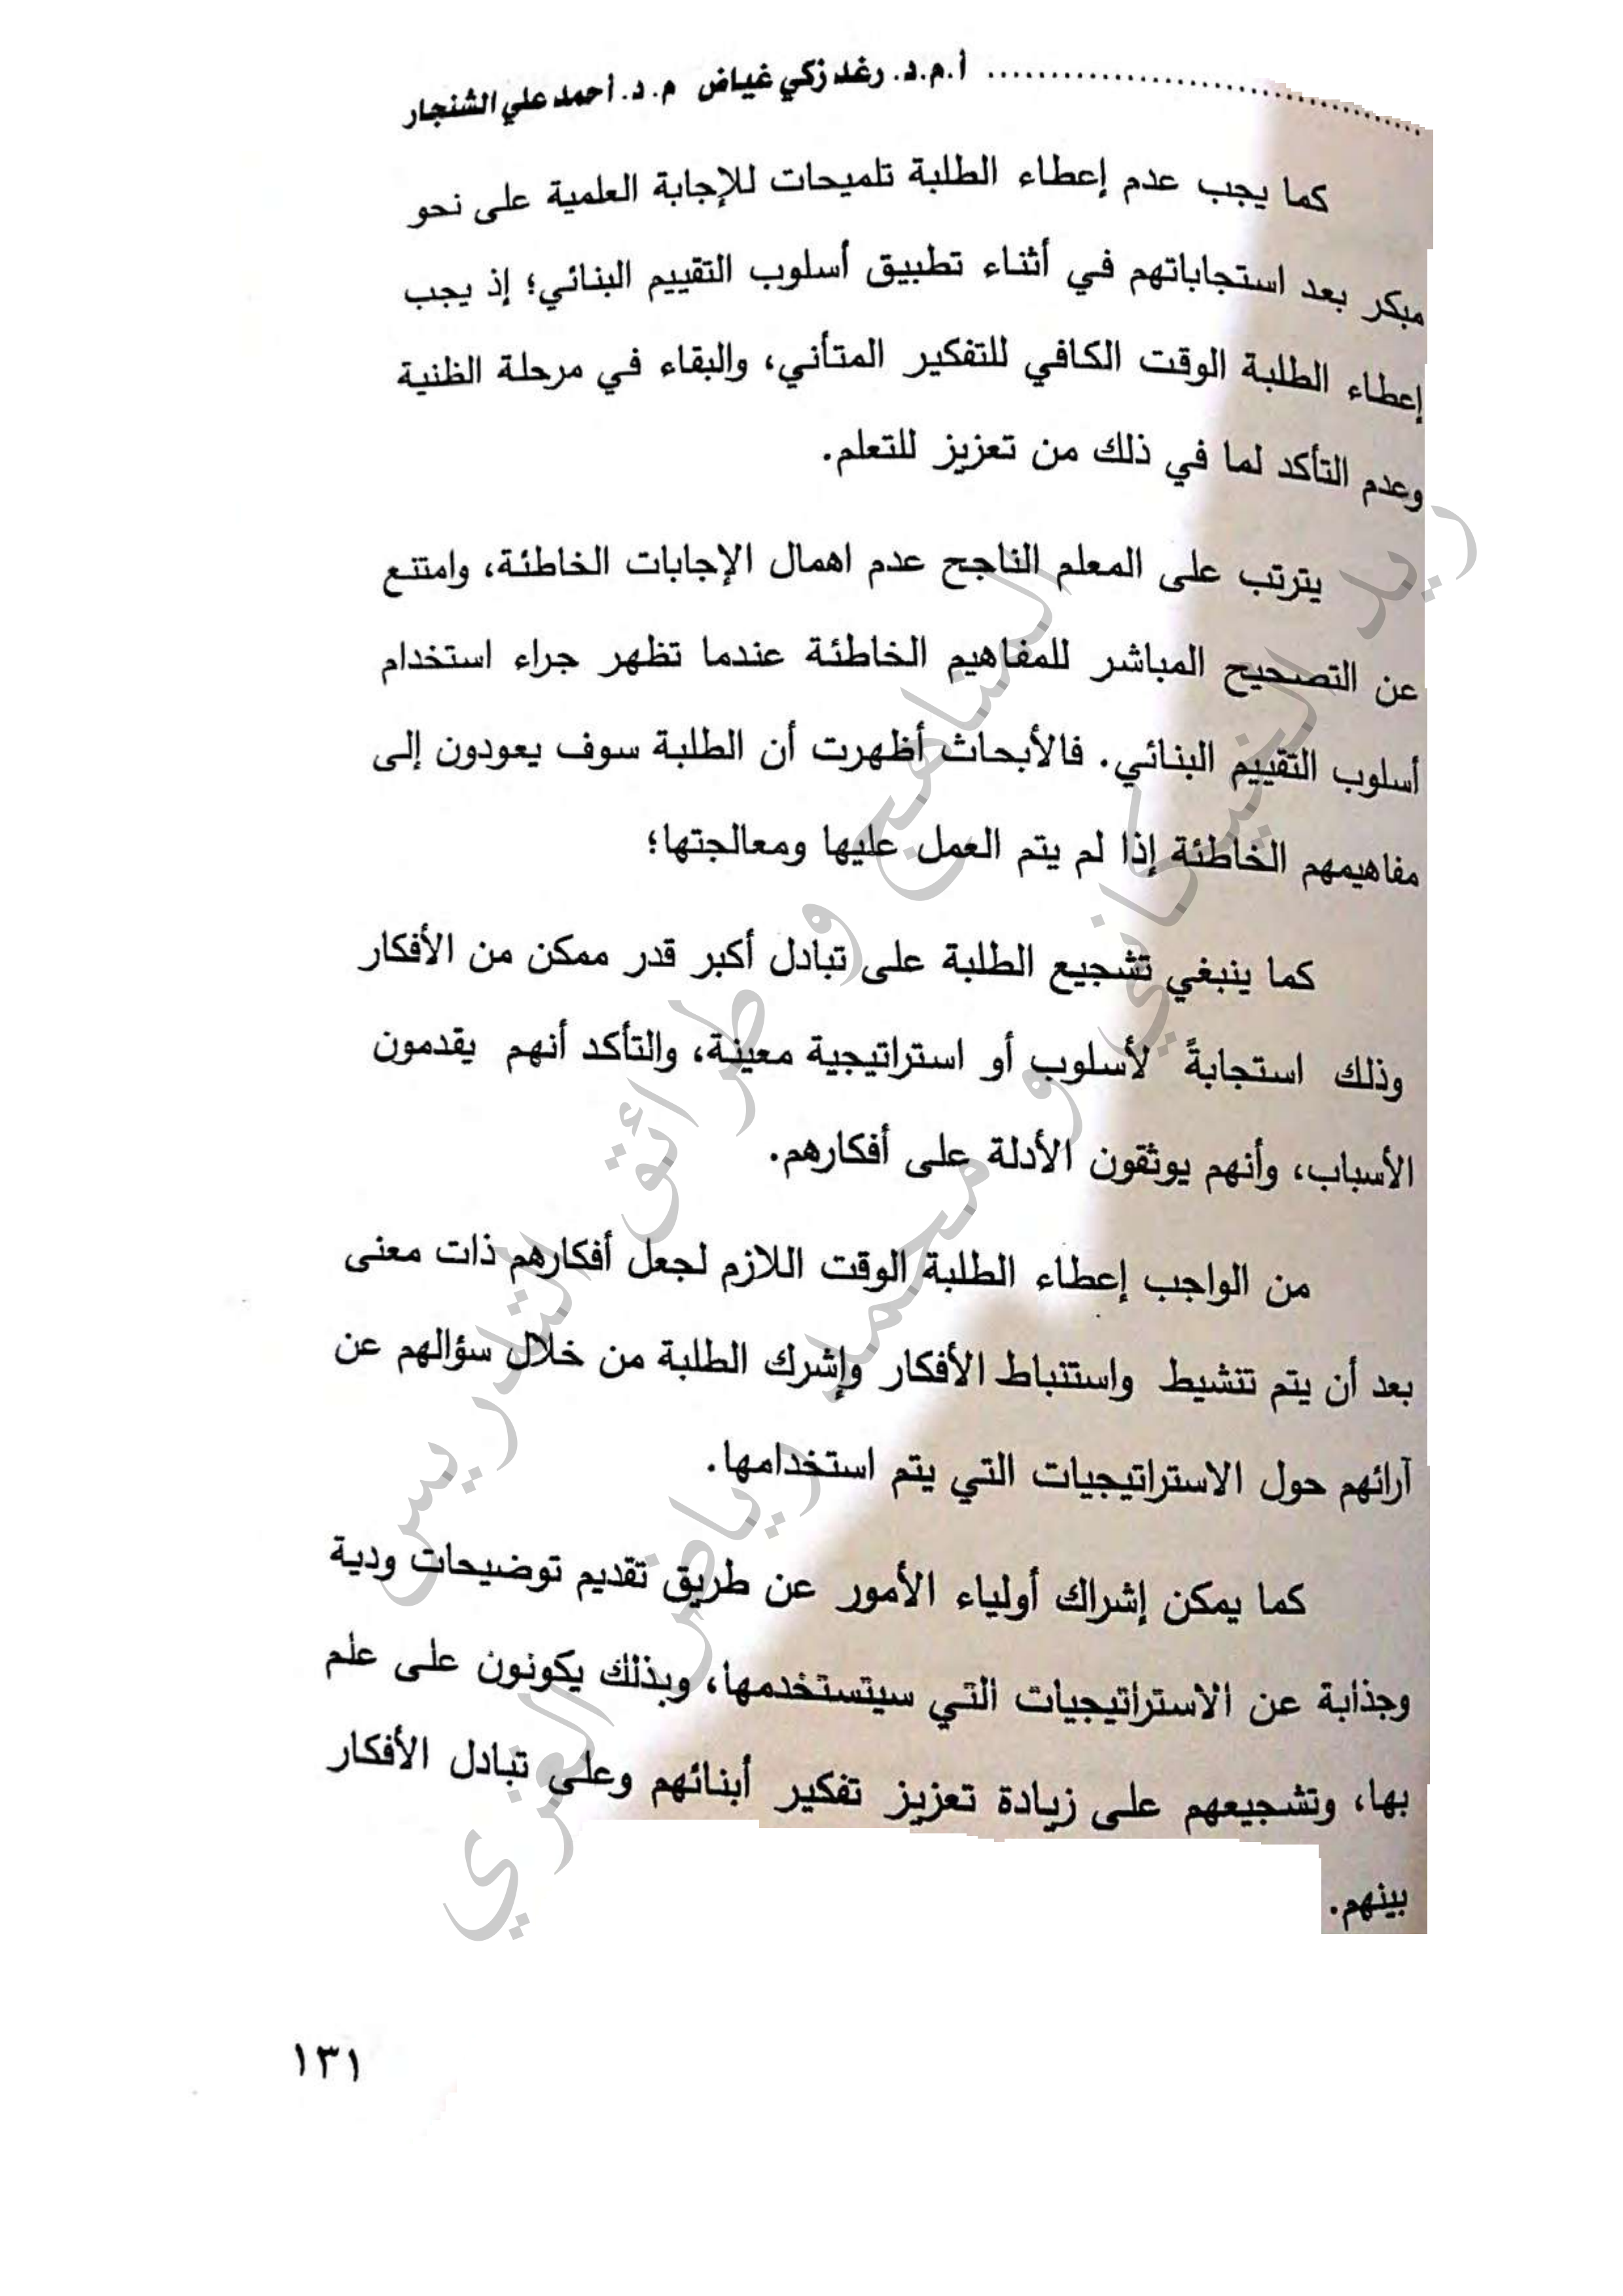 أ.م.د. رغد زكي غياض م. د. أحمد علي الشنجار
كما يجب عدم إعطاء الطلبة تلميحات للإجابة العلمية على نحو
مبكر بعد استجاباتهم في أثناء تطبيق أسلوب التقييم البنائي؛ إذ يجب
إعطاء الطلبة الوقت الكافي للتفكير المتأني، والبقاء في مرحلة الظنية
وعدم التأكد لما في ذلك من تعزيز للتعلم.
يترتب على المعلم الناجح عدم اهمال الإجابات الخاطئة، وامتنع
عن التصحيح المباشر للمفاهيم الخاطئة عندما تظهر جراء استخدام
أسلوب التقييم البنائي. فالأبحاث أظهرت أن الطلبة سوف يعودون إلى
مفاهيمهم الخاطئة إذا لم يتم العمل عليها ومعالجتها؛
كما ينبغي تشجيع الطلبة على تبادل أكبر قدر ممكن من الأفكار
وذلك استجابةً لأسلوب أو استراتيجية معينة، والتأكد أنهم يقدمون
الأسباب، وأنهم يوثقون الأدلة على أفكارهم.
من الواجب إعطاء الطلبة الوقت اللازم لجعل أفكارهم ذات معنى
بعد أن يتم تنشيط واستنباط الأفكار وإشرك الطلبة من خلال سؤالهم عن
آرائهم حول الاستراتيجيات التي يتم استخدامها.
كما يمكن إشراك أولياء الأمور عن طريق تقديم توضيحات ودية
وجذابة عن الاستراتيجيات التي سيتستخدمها، وبذلك يكونون على علم
بها، وتشجيعهم على زيادة تعزيز تفكير أبنائهم وعلى تبادل الأفكار
بينهم.
١٣١
المناهج و طرائق التدريس
و محمد رياض الغزي